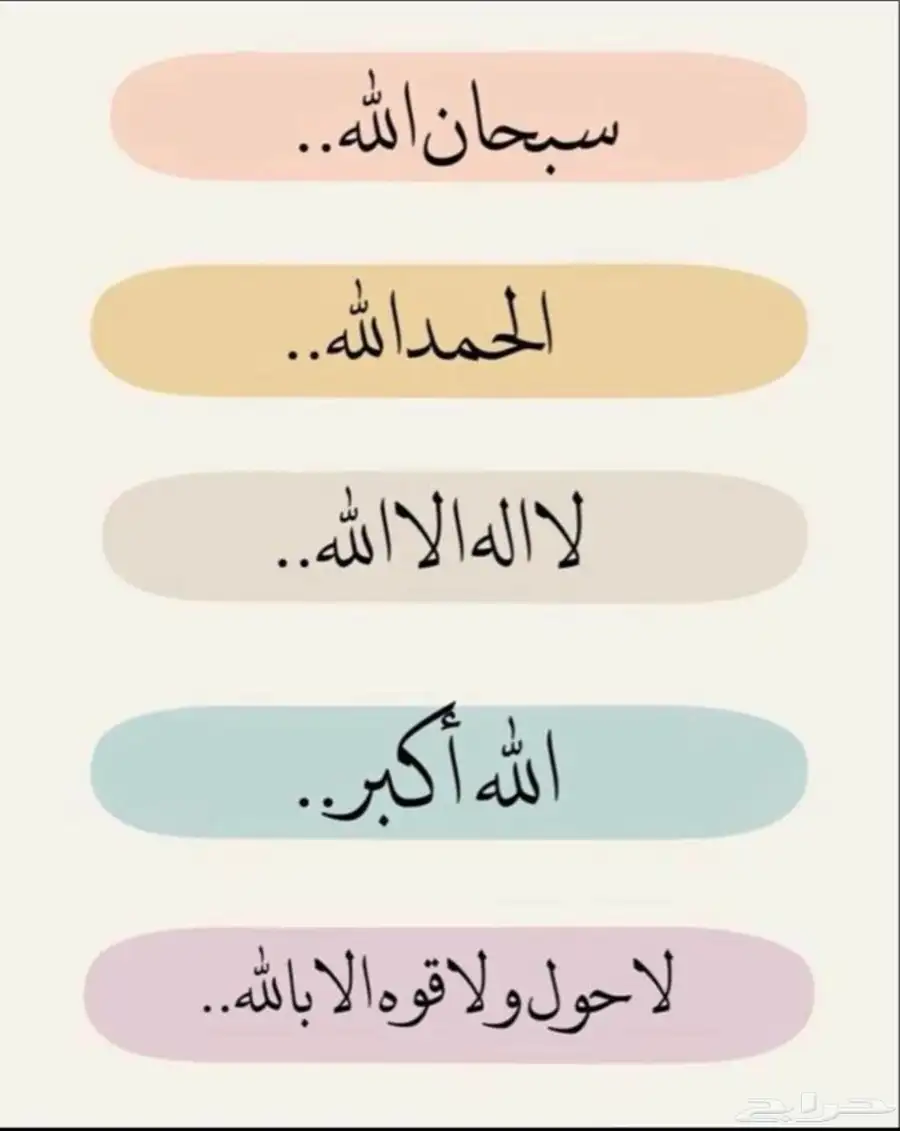 سبحان الله..
الحمدالله..
لا اله الا الله..
الله أكبر..
لا حول ولا قوه الا بالله..
حراج